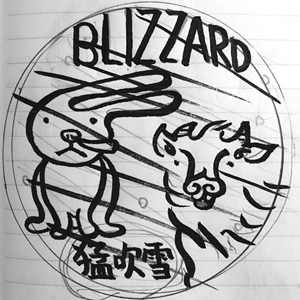 BLIZZARD
猛吹雪